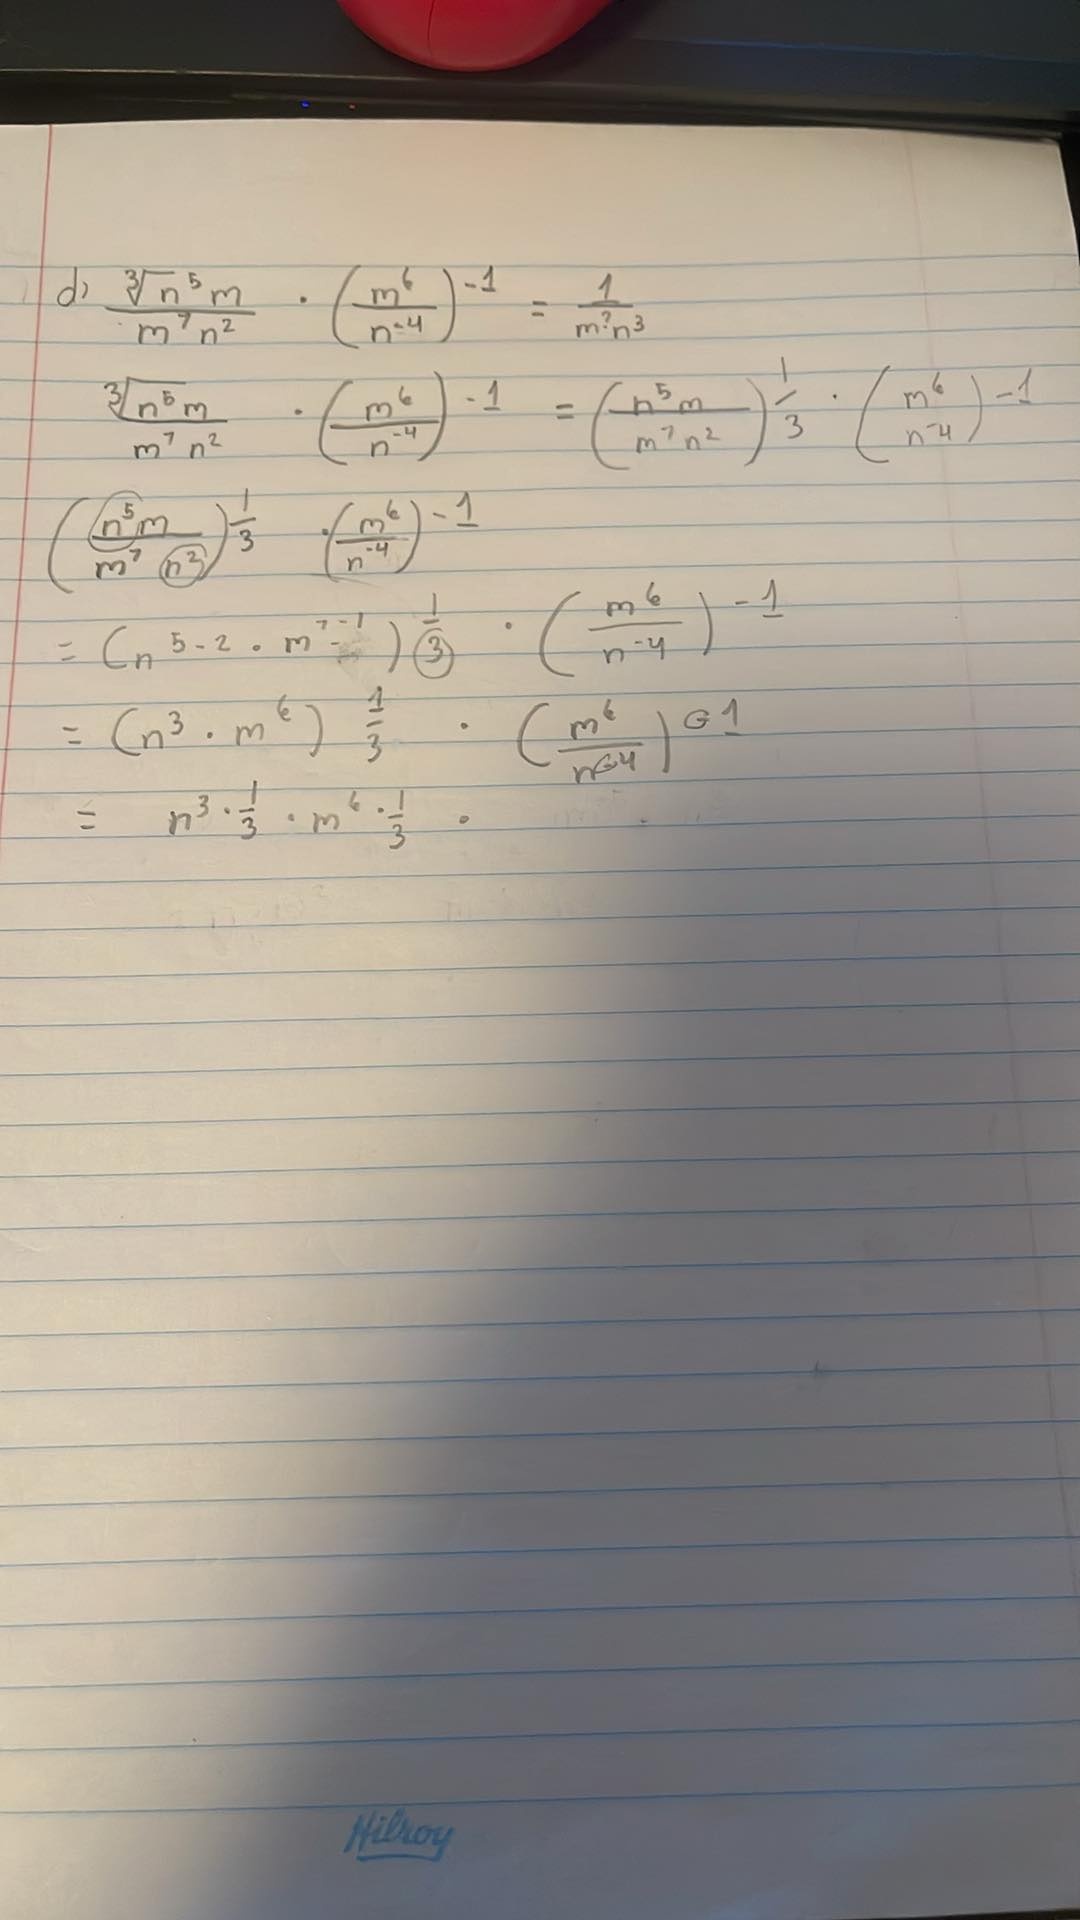 d) ∛n⁵m / m⁷n² · (m⁶ / n⁻⁴)⁻¹ = 1 / m?n³
∛n⁵m / m⁷n² · (m⁶ / n⁻⁴)⁻¹ = (n⁵m / m⁷n²)^(1/3) · (m⁶ / n⁻⁴)⁻¹
(n⁵m / m⁷n²)^(1/3) · (m⁶ / n⁻⁴)⁻¹
= (n⁵⁻² · m⁷⁻¹)^(1/3) · (m⁶ / n⁻⁴)⁻¹
= (n³ · m⁶)^(1/3) · (m⁶ / n⁻⁴)⁻¹
= n³ · 1/3 · m⁶ · 1/3 ·
Hilroy